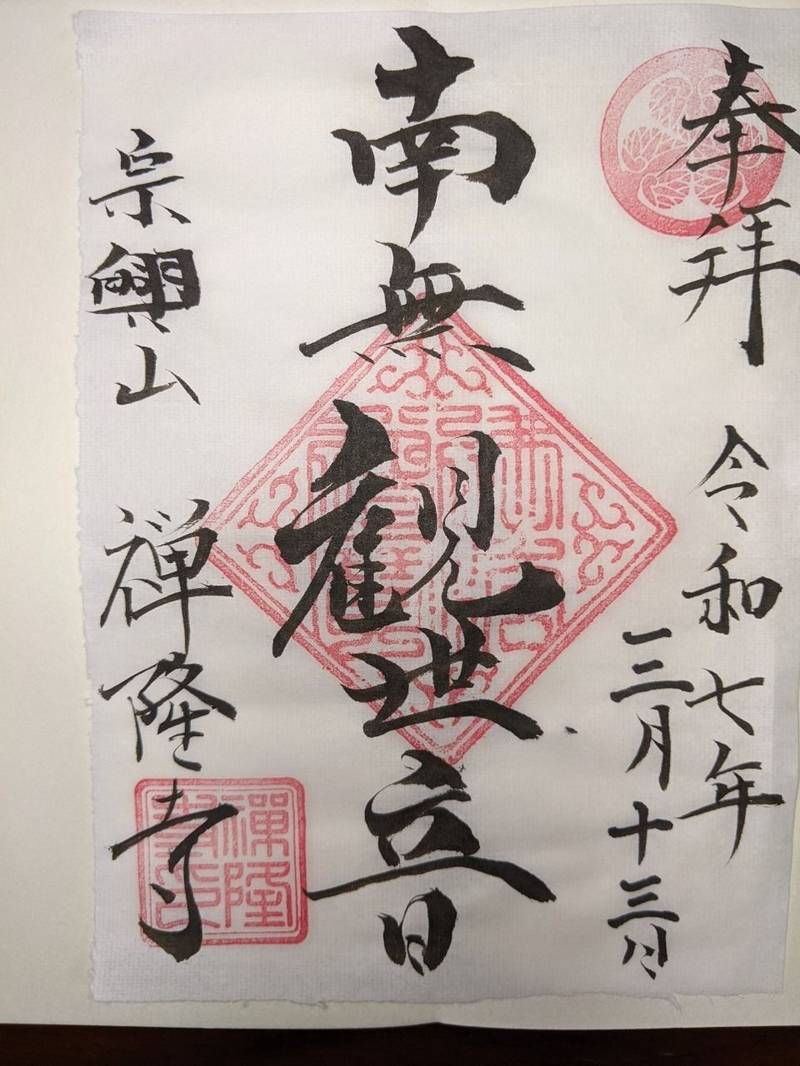 奉拝
令和七年
三月十三日
南無観世音
宗興山
禅隆寺
禅隆寺印